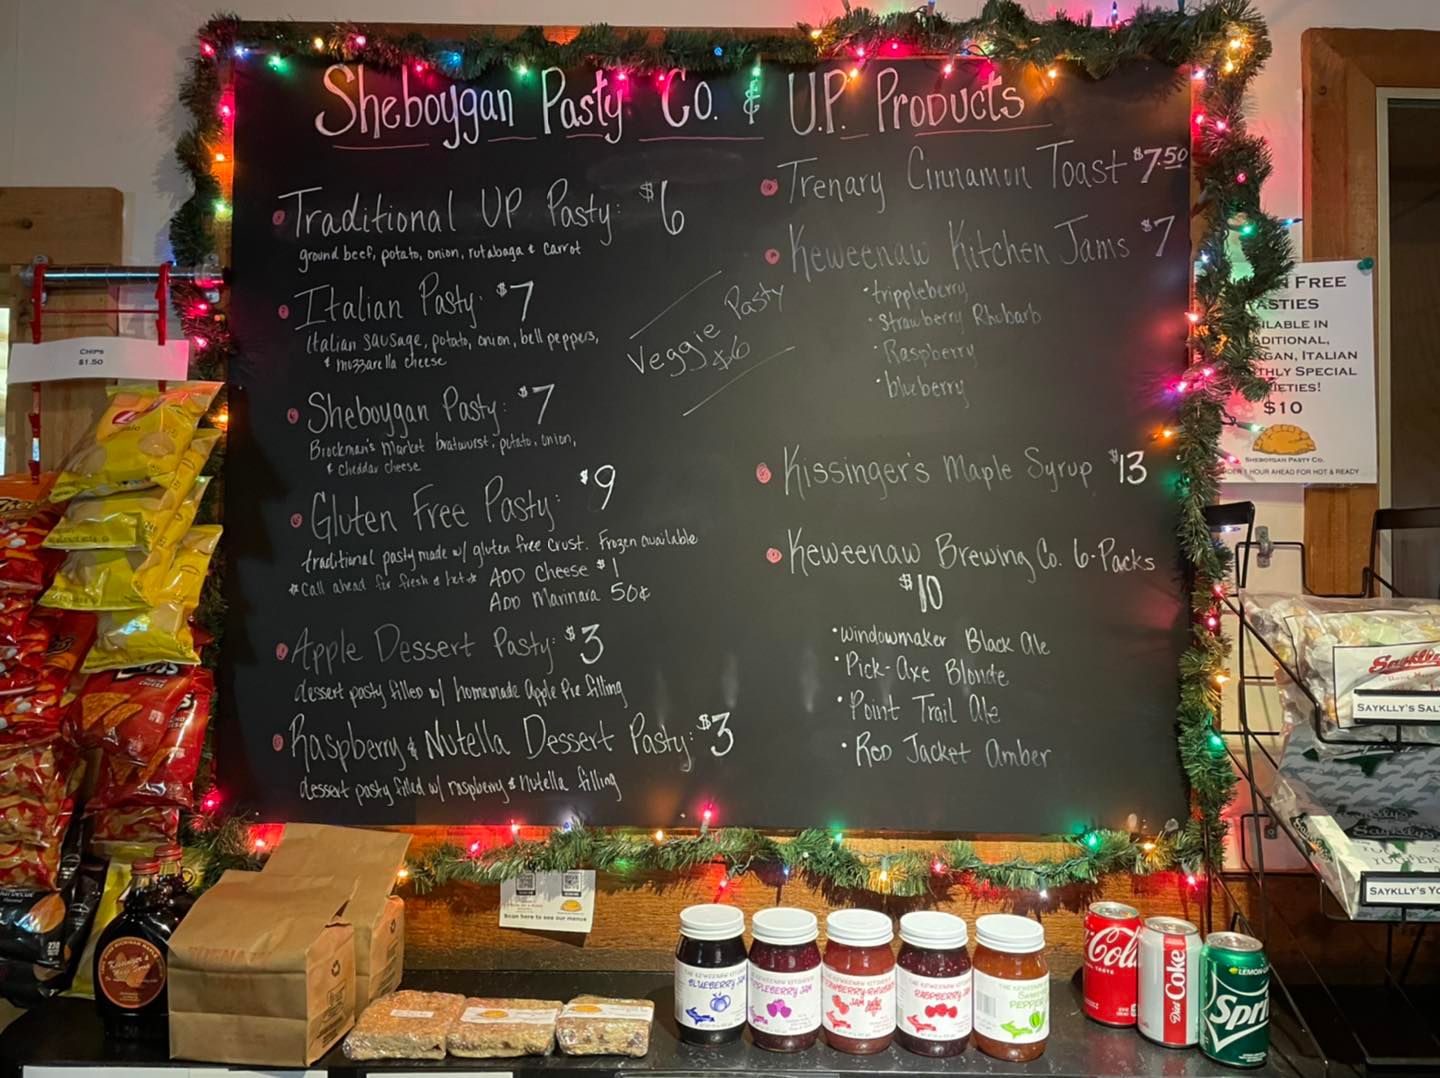 Sheboygan Pasty Co. & U.P. Products
Traditional UP Pasty: $6
ground beef, potato, onion, rutabaga & carrot
Italian Pasty: $7
italian sausage, potato, onion, bell peppers,
& mozzarella cheese
Sheboygan Pasty: $7
Brockman's Market bratwurst, potato, onion,
& cheddar cheese
Gluten Free Pasty: $9
traditional pasty made w/ gluten free crust. Frozen available
*Call ahead for fresh & hot*
ADD Cheese $1
ADD Marinara 50¢
Apple Dessert Pasty: $3
dessert pasty filled w/ homemade Apple Pie filling
Raspberry & Nutella Dessert Pasty: $3
dessert pasty filled w/ raspberry & Nutella filling
Veggie Pasty
$6
Trenary Cinnamon Toast $7.50
Keweenaw Kitchen Jams $7
trippleberry
Strawberry Rhubarb
Raspberry
blueberry
Kissinger's Maple Syrup $13
Keweenaw Brewing Co. 6-Packs
$10
Windowmaker Black Ale
Pick-Axe Blonde
Point Trail Ale
Red Jacket Amber
CHIPS
$1.50
FREE
$10
SHEBOYGAN PASTY CO.
1 HOUR AHEAD FOR HOT & READY
SAYKLLY'S
Scan here to see our menus
BLUEBERRY JAM
RASPBERRY JAM
Coca-Cola
Diet Coke
Sprite